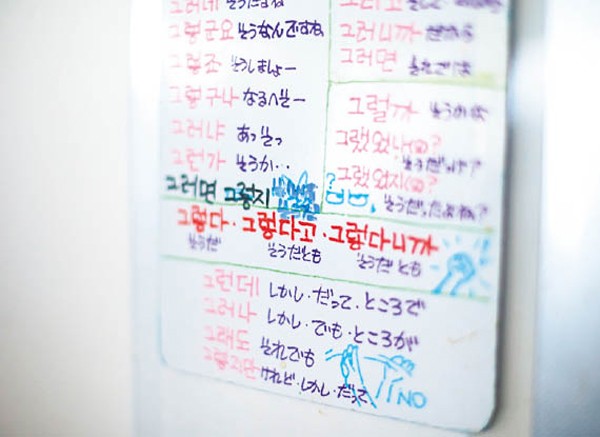 그렇군요 そうなんですね
그렇죠 そうしましょー
그렇구나 なるへそー
그러냐 あっそっ
그런가 そうか…
그러면 그렇지
그러니까 だから
그러면 それでは
그럴까 そうかな
그랬었나(요)?
そうだっけ?
그랬었지(요)?
そうだったよね?
그렇다·그렇다고·그렇다니까
そうだ そうだとも そうだとも
그런데 しかし·だって·ところで
그러나 しかし·でも·ところが
그래도 それでも
그렇지만 けれど·しかし·だって
NO